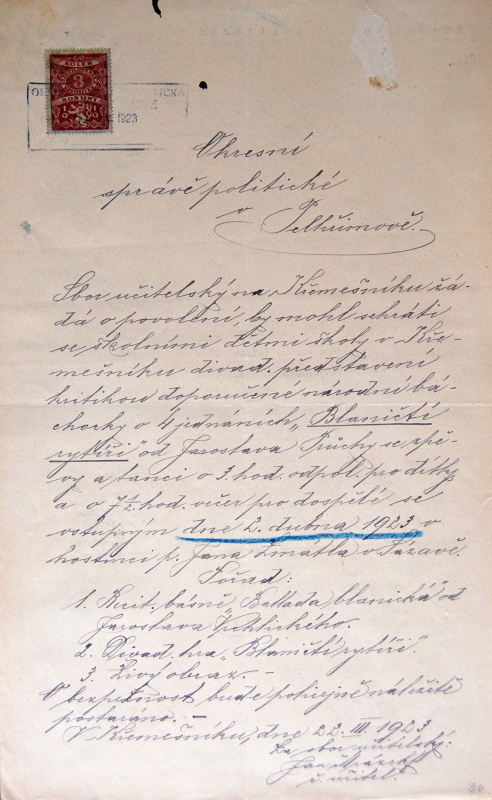 KOLEK
3
KORUNY
1923
Okresní
správě politické
v Pelhřimově.
Sbor učitelský na Křemešníku žá-
dá o povolení, by mohl sehráti
se školními dětmi školy v Kře-
mešníku divad. představení
kritikou doporučené národní bá-
chorky o 4 jednáních „Blaničtí
rytíři" od Jaroslava Průchy se zpě-
vy a tanci o 3. hod. odpol. pro dítky
a o 7½ hod. večer pro dospělé se
vstupným dne 2. dubna 1923 v
hostinci p. Jana Zmátla v Sázavě.
Pořad:
1. Recit. básně „Ballada blanická" od
Jaroslava Vrchlického.
2. Divad. hra „Blaničtí rytíři".
3. Živý obraz. –
O bezpečnost bude policejně náležitě
postaráno. –
V Křemešníku, dne 22. III. 1923
Za sbor učitelský:
Jan Mrázek
ř. učitel.
30